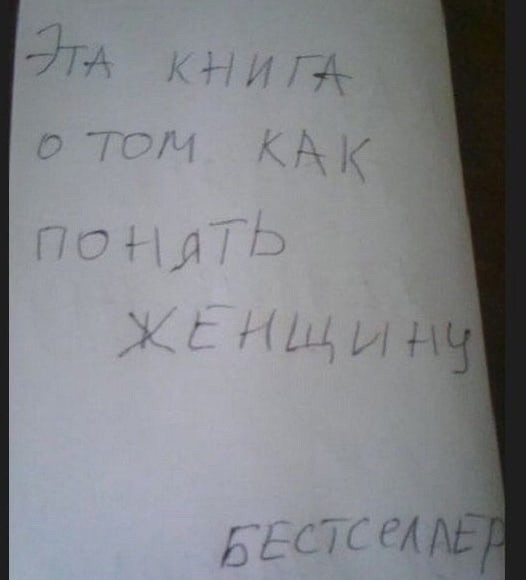 ЭТА КНИГА
О ТОМ КАК
ПОНЯТЬ
ЖЕНЩИНУ
БЕСТСЕЛЛЕР